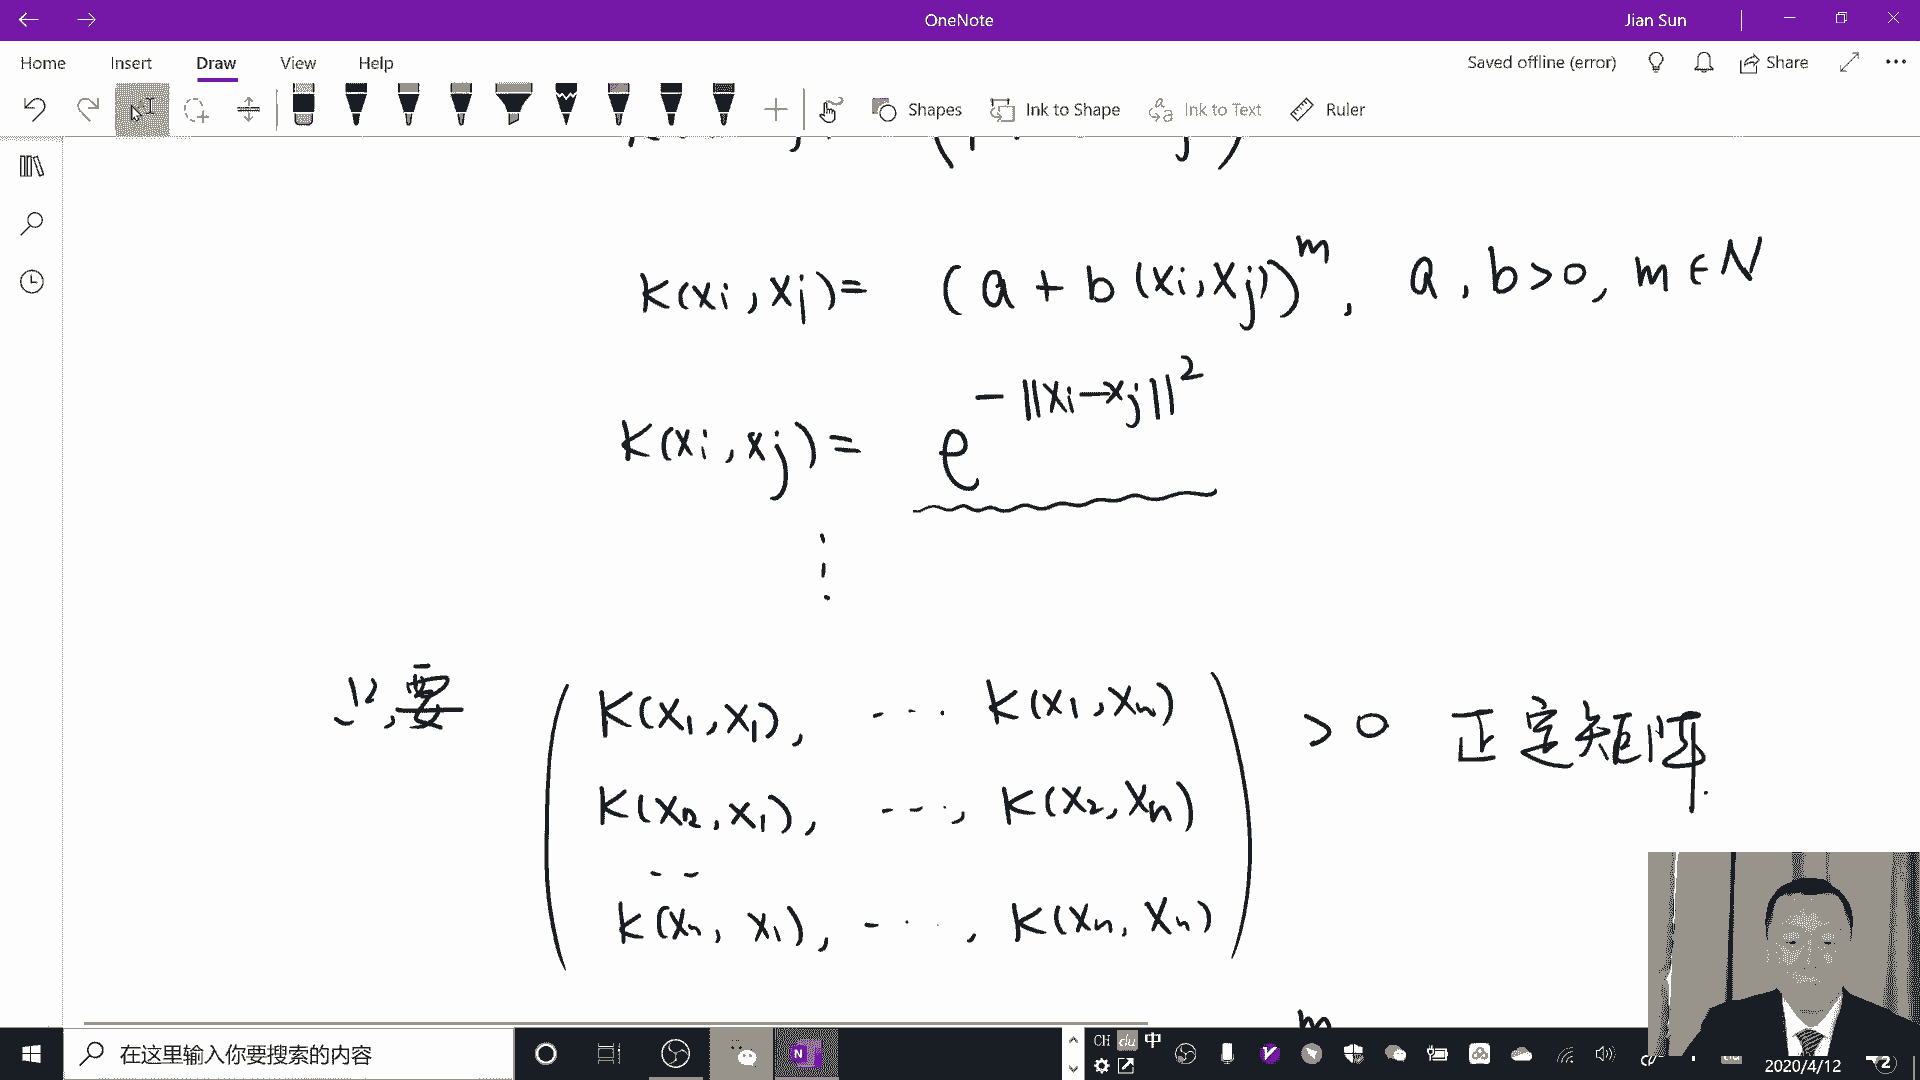 OneNote
Jian Sun
Home Insert Draw View Help
Saved offline (error)
Share
Shapes
Ink to Shape
Ink to Text
Ruler
K(xi, xj) = (a + b(xi, xj))^m, a, b > 0, m ∈ N
K(xi, xj) = e^{-||xi-xj||^2}
⋮
只要
K(x1, x1), ... K(x1, xn)
K(x2, x1), ..., K(x2, xn)
> 0 正定矩阵.
K(xn, x1), ..., K(xn, xn)
m
在这里输入你要搜索的内容
CH du 中
2020/4/12
2